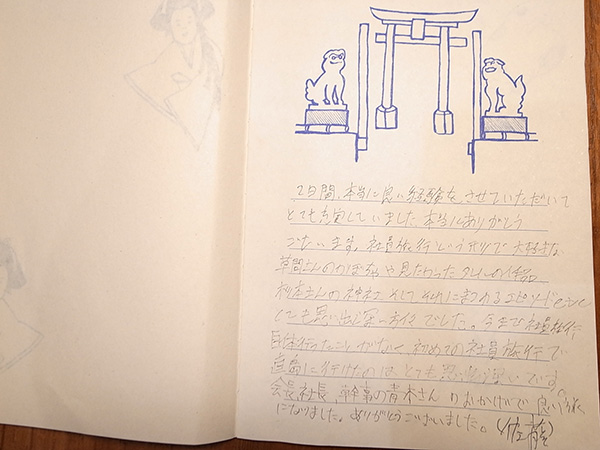 2日間、本当に良い経験をさせていただいて
とても充実していました。本当にありがとう
ございます。社員旅行という形で大好きな
草間さんの や見たかった タレルの作品
杉本さんの神社、そして それにまつわるエピソードetc
とても思い出深い 今まで社員旅行
自体行ったことがなく、初めての社員旅行で
直島に行けたのは とても 深いです。
会長、社長、幹事の青木さん のおかげで 良い旅
になりました。ありがとうございました。